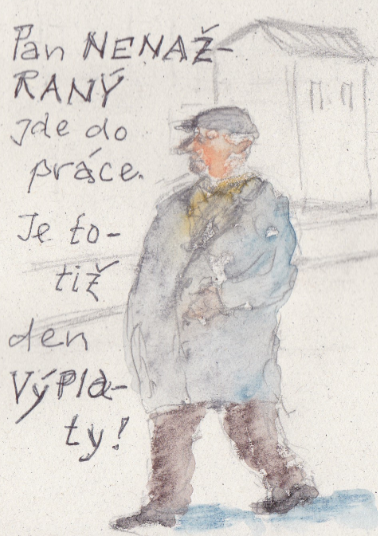 Pan NENAŽ-
RANÝ
jde do
práce.
Je to-
tiž
den
Výpla-
ty!